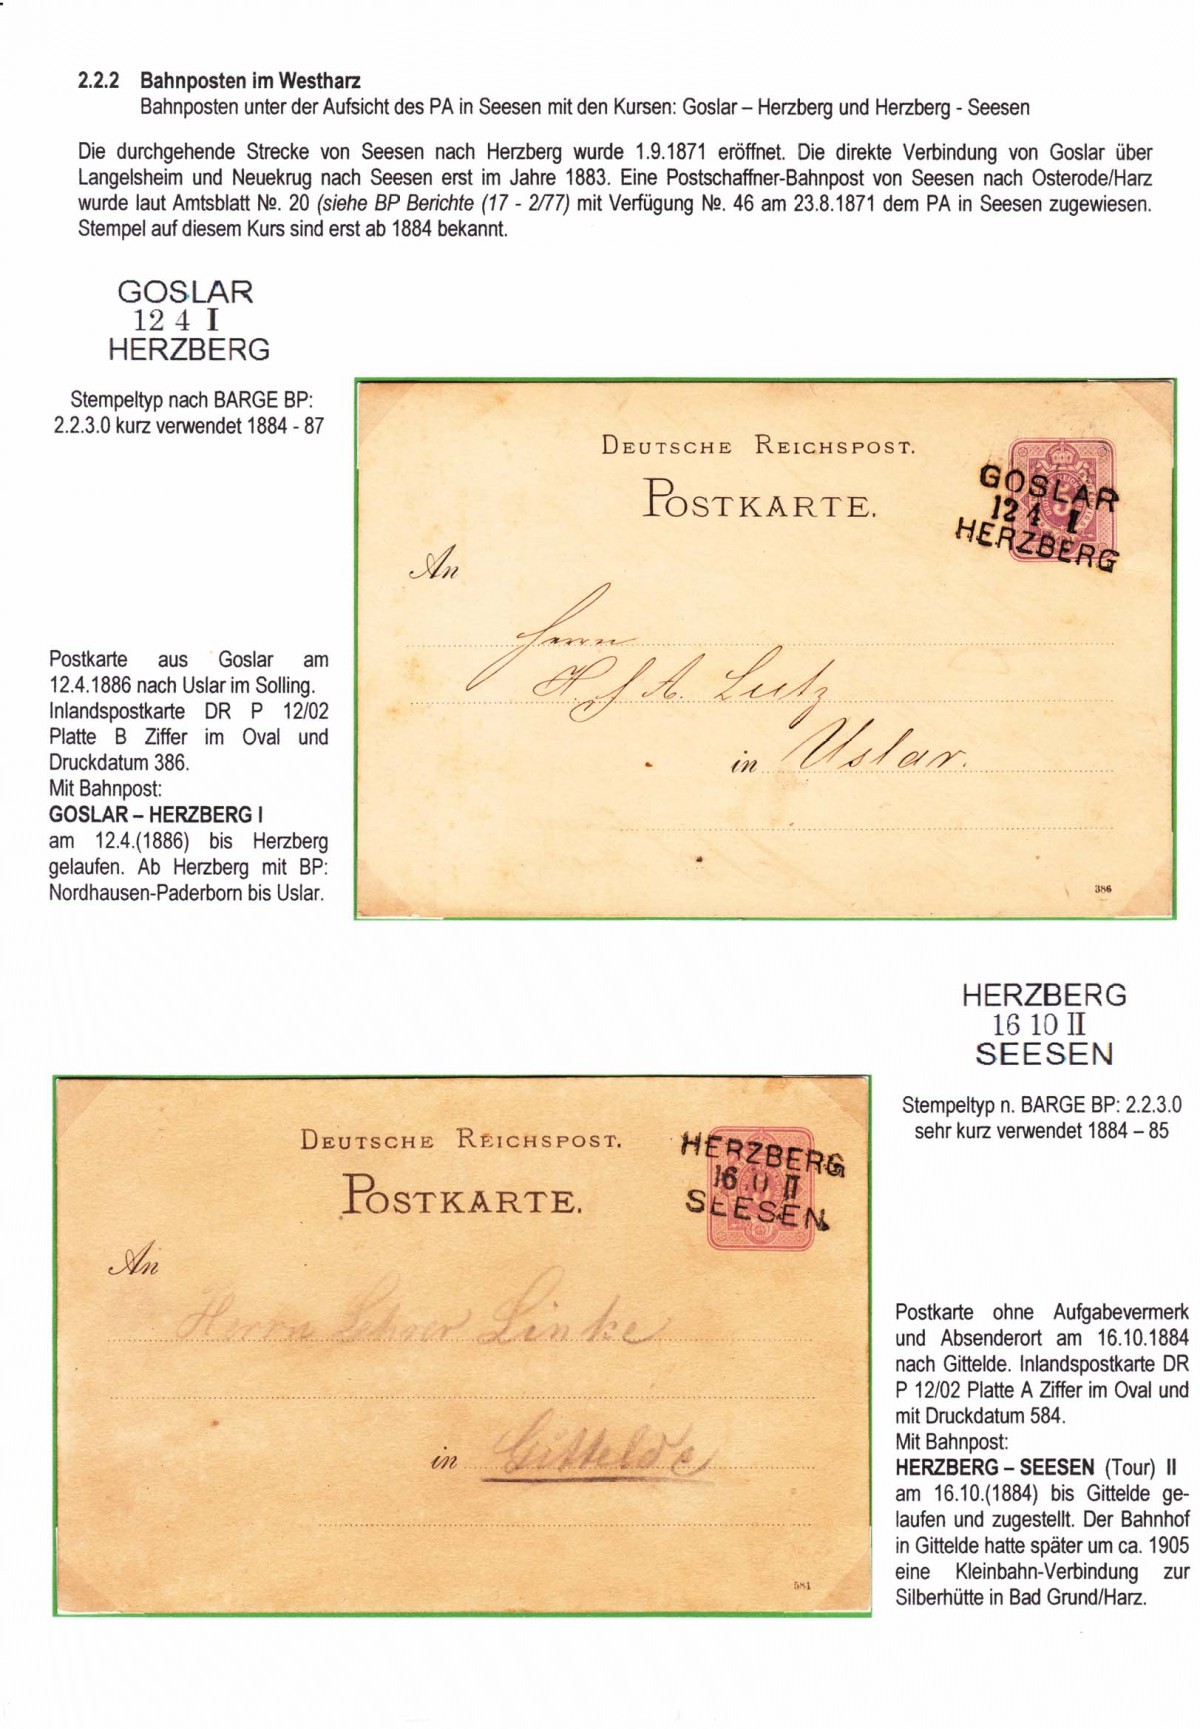 2.2.2 Bahnposten im Westharz
Bahnposten unter der Aufsicht des PA in Seesen mit den Kursen: Goslar – Herzberg und Herzberg - Seesen
Die durchgehende Strecke von Seesen nach Herzberg wurde 1.9.1871 eröffnet. Die direkte Verbindung von Goslar über
Langelsheim und Neuekrug nach Seesen erst im Jahre 1883. Eine Postschaffner-Bahnpost von Seesen nach Osterode/Harz
wurde laut Amtsblatt №. 20 (siehe BP Berichte (17 - 2/77) mit Verfügung №. 46 am 23.8.1871 dem PA in Seesen zugewiesen.
Stempel auf diesem Kurs sind erst ab 1884 bekannt.
GOSLAR
12 4 I
HERZBERG
Stempeltyp nach BARGE BP:
2.2.3.0 kurz verwendet 1884 - 87
DEUTSCHE REICHSPOST.
POSTKARTE.
GOSLAR
12 4 I
HERZBERG
An
Herrn
H. J. A. Lutz
in Uslar.
386
Postkarte aus Goslar am
12.4.1886 nach Uslar im Solling.
Inlandspostkarte DR P 12/02
Platte B Ziffer im Oval und
Druckdatum 386.
Mit Bahnpost:
GOSLAR – HERZBERG I
am 12.4.(1886) bis Herzberg
gelaufen. Ab Herzberg mit BP:
Nordhausen-Paderborn bis Uslar.
HERZBERG
16 10 II
SEESEN
Stempeltyp n. BARGE BP: 2.2.3.0
sehr kurz verwendet 1884 – 85
DEUTSCHE REICHSPOST.
POSTKARTE.
HERZBERG
16 10 II
SEESEN
An
Herrn Lehrer Linke
in Gittelde
584
Postkarte ohne Aufgabevermerk
und Absenderort am 16.10.1884
nach Gittelde. Inlandspostkarte DR
P 12/02 Platte A Ziffer im Oval und
mit Druckdatum 584.
Mit Bahnpost:
HERZBERG – SEESEN (Tour) II
am 16.10.(1884) bis Gittelde ge-
laufen und zugestellt. Der Bahnhof
in Gittelde hatte später um ca. 1905
eine Kleinbahn-Verbindung zur
Silberhütte in Bad Grund/Harz.